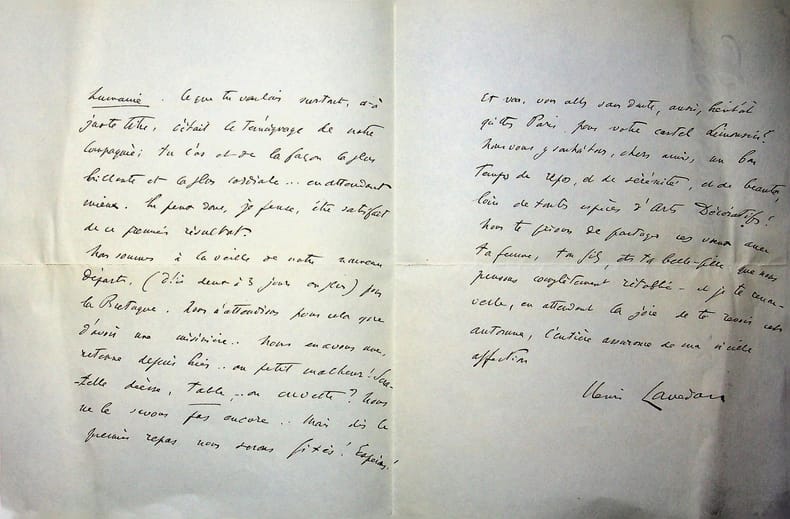 humaine. Ce que tu voulais surtout, à
juste titre, c'était le témoignage de notre
Compagnie; tu l'as et de la façon la plus
brillante et la plus cordiale... en attendant
mieux. Tu peux donc, je pense, être satisfait
de ce premier résultat.
Nous sommes à la veille de notre nouveau
départ, (d'ici deux à 3 jours au plus) pour
la Bretagne. Nous n'attendions pour cela que
d'avoir une cuisinière. Nous en avons une,
retenue depuis hier.. au petit malheur! Sera-
t-elle déesse, table.. ou cuvette? Nous
ne le savons pas encore.. Mais dès le
premier repas nous serons fixés! Espérons!
Et vous, vous allez sans doute, aussi, bientôt
quitter Paris, pour votre castel limousin?
Nous vous y souhaitons, chers amis, un bon
temps de repos, et de sérénité, et de beauté,
loin de toutes espèces d'Arts Décoratifs!
Nous te prions de partager ces vœux avec
ta femme, ton fils, et ta belle-fille que nous
pensons complètement rétablie - et je te renou-
velle, en attendant la joie de te revoir cet
automne, l'entière assurance de ma vieille
affection
Henri Lavedan